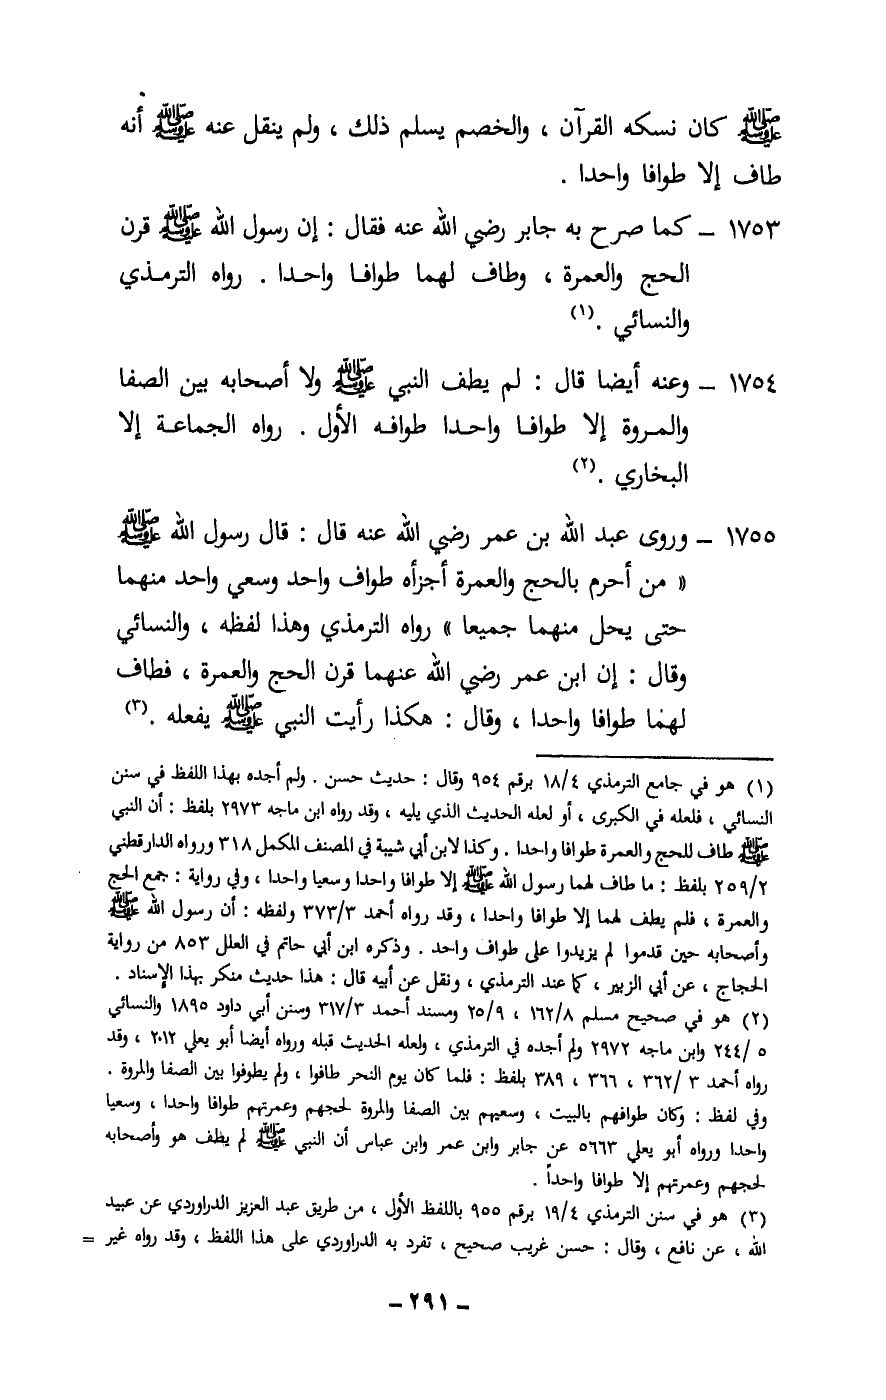 ﷺ كان نسكه القرآن ، والخصم يسلم ذلك ، ولم ينقل عنه ﷺ أنه
طاف إلا طوافا واحدا .
١٧٥٣ – كما صرح به جابر رضي الله عنه فقال : إن رسول الله ﷺ قرن
الحج والعمرة ، وطاف لهما طوافـا واحـدا . رواه الترمـذي
والنسائي .(١)
١٧٥٤ – وعنه أيضا قال : لم يطف النبي ﷺ ولا أصحابه بين الصفا
والمـروة إلا طوافـا واحـدا طوافـه الأول . رواه الجماعـة إلا
البخاري .(٢)
١٧٥٥ – وروى عبد الله بن عمر رضي الله عنه قال : قال رسول الله ﷺ
« من أحرم بالحج والعمرة أجزأه طواف واحد وسعي واحد منهما
حتى يحل منهما جميعا » رواه الترمذي وهذا لفظه ، والنسائي
وقال : إن ابن عمر رضي الله عنهما قرن الحج والعمرة ، فطاف
لهما طوافا واحدا ، وقال : هكذا رأيت النبي ﷺ يفعله .(٣)
(١) هو في جامع الترمذي ١٨/٤ برقم ٩٥٤ وقال : حديث حسن . ولم أجده بهذا اللفظ في سنن
النسائي ، فلعله في الكبرى ، أو لعله الحديث الذي يليه ، وقد رواه ابن ماجه ٢٩٧٣ بلفظ : أن النبي
ﷺ طاف للحج والعمرة طوافا واحدا . وكذا لابن أبي شيبة في المصنف المكمل ٣١٨ ورواه الدارقطني
٢٥٩/٢ بلفظ : ما طاف لهما رسول الله ﷺ إلا طوافا واحدا وسعيا واحدا ، وفي رواية : جمع الحج
والعمرة ، فلم يطف لهما إلا طوافا واحدا ، وقد رواه أحمد ٣٧٣/٣ ولفظه : أن رسول الله ﷺ
وأصحابه حين قدموا لم يزيدوا على طواف واحد . وذكره ابن أبي حاتم في العلل ٨٥٣ من رواية
الحجاج ، عن أبي الزبير ، كما عند الترمذي ، ونقل عن أبيه قال : هذا حديث منكر بهذا الإسناد .
(٢) هو في صحيح مسلم ١٦٢/٨ ، ٢٥/٩ ومسند أحمد ٣١٧/٣ وسنن أبي داود ١٨٩٥ والنسائي
٢٤٤/٥ وابن ماجه ٢٩٧٢ ولم أجده في الترمذي ، ولعله الحديث قبله ورواه أيضا أبو يعلي ٢٠١٢ ، وقد
رواه أحمد ٣ /٣٦٢ ، ٣٦٦ ، ٣٨٩ بلفظ : فلما كان يوم النحر طافوا ، ولم يطوفوا بين الصفا والمروة .
وفي لفظ : وكان طوافهم بالبيت ، وسعيهم بين الصفا والمروة لحجهم وعمرتهم طوافا واحدا ، وسعيا
واحدا ورواه أبو يعلي ٥٦٦٣ عن جابر وابن عمر وابن عباس أن النبي ﷺ لم يطف هو وأصحابه
لحجهم وعمرتهم إلا طوافا واحداً .
(٣) هو في سنن الترمذي ١٩/٤ برقم ٩٥٥ باللفظ الأول ، من طريق عبد العزيز الدراوردي عن عبيد
الله ، عن نافع ، وقال : حسن غريب صحيح ، تفرد به الدراوردي على هذا اللفظ ، وقد رواه غير =
– ٢٩١ –